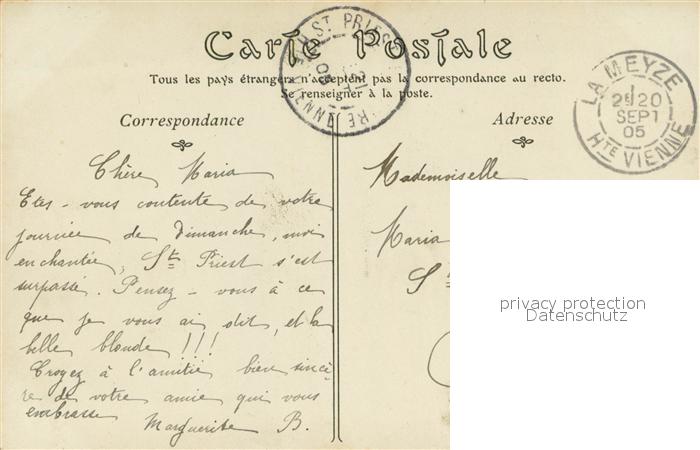 Carte Postale
Tous les pays étrangers n'acceptent pas la correspondance au recto.
Se renseigner à la poste.
Correspondance
Chère Maria
Etes-vous contente de votre
journée de Dimanche, moi
enchantée, St Priest s'est
surpassé. Pensez-vous à ce
que je vous ai dit, et la
belle blonde !!!
Croyez à l'amitié bien sincè-
re de votre amie qui vous
embrasse
Marguerite B.
Adresse
Mademoiselle
Maria
S
ST PRIEST
VIENNE
LA MEYZE
20
SEPT
05
HTE VIENNE
privacy protection
Datenschutz